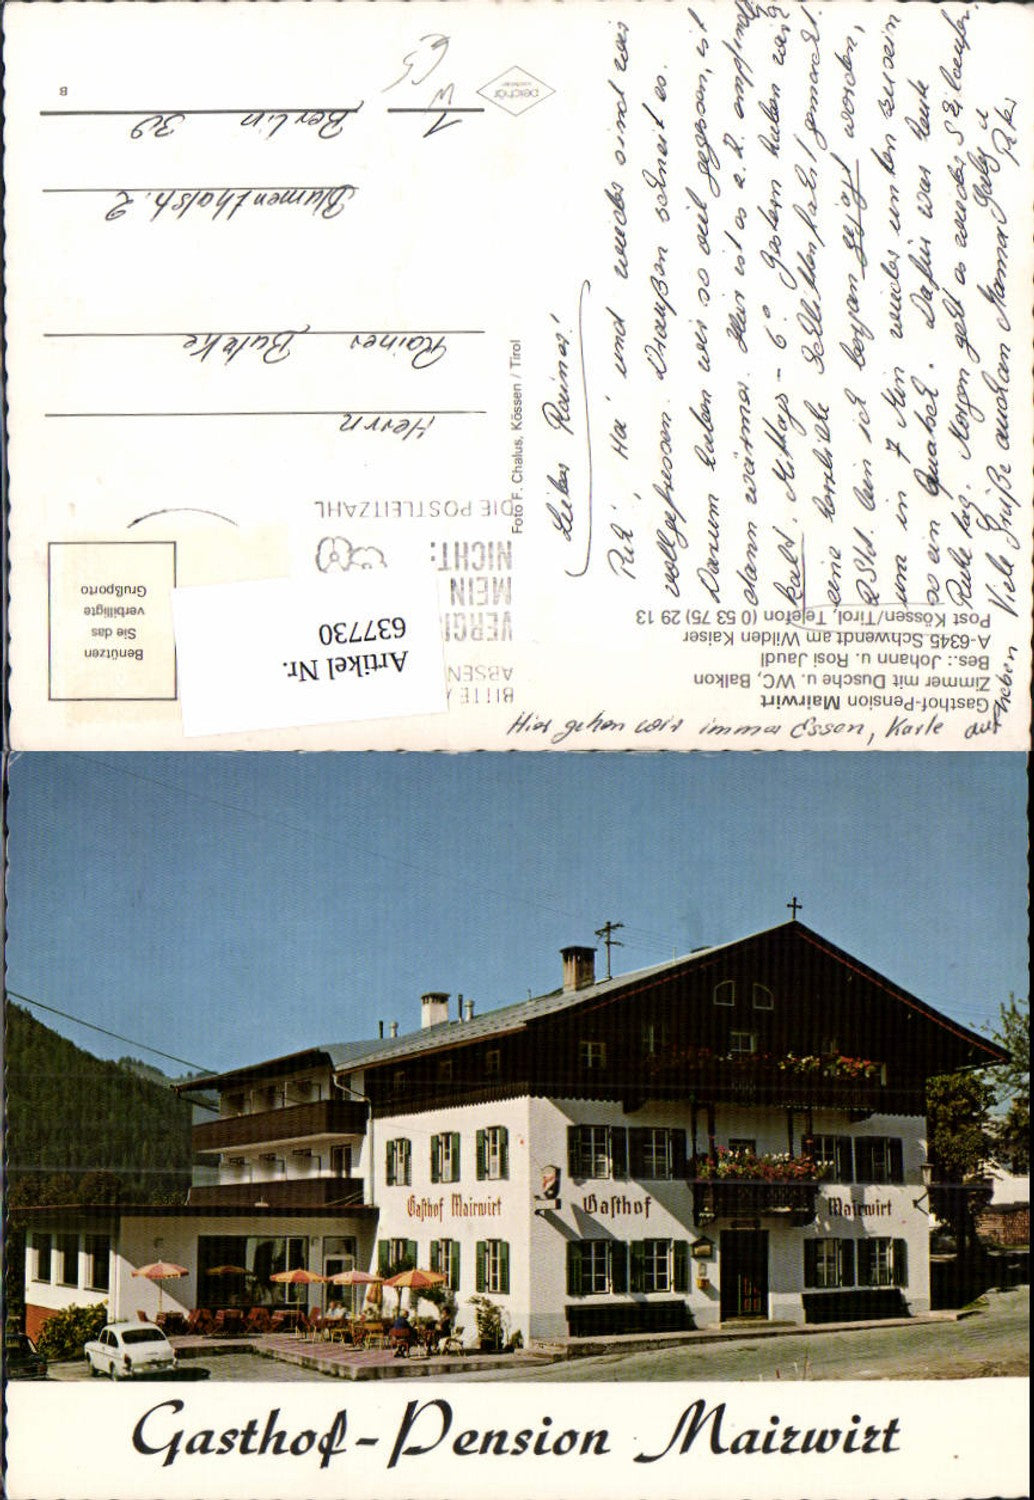 Hier gehen wir immer Essen, Karte aufheben
Gasthof-Pension Mairwirt
Zimmer mit Dusche u. WC, Balkon
Bes.: Johann u. Rosi Jaudl
A-6345 Schwendt am Wilden Kaiser
Post Kössen/Tirol, Telefon (0 53 75) 29 13
Lieber Rainer!
und wieder sind wir
vollgefressen. Draußen schneit es.
Darum haben wir so viel gegessen, ist
dann wärmer. Hier ist es z.Z. empfindl.
kalt. Mittags - 6° Gestern haben wir
eine herrliche Schlittenfahrt gemacht.
2 Std. bin ich bergan gejagt worden,
um in 7 Min wieder unten zu sein
so ein Quatsch. Dafür war heute
Ruhetag. Morgen geht es wieder Skilaufen.
Viele Grüße auch an Mama Gaby u
Peter
Foto F. Chalus, Kössen / Tirol
peichär
BITTE
ABSEN
VERGI
MEIN
NICHT:
DIE POSTLEITZAHL
Artikel Nr.
637730
Benützen
Sie das
verbilligte
Grußporto
Herrn
Rainer Butzke
Blumenthalstr. 2
1 Berlin 30
W
B
Gasthof Mairwirt
Gasthof Mairwirt
Gasthof-Pension Mairwirt